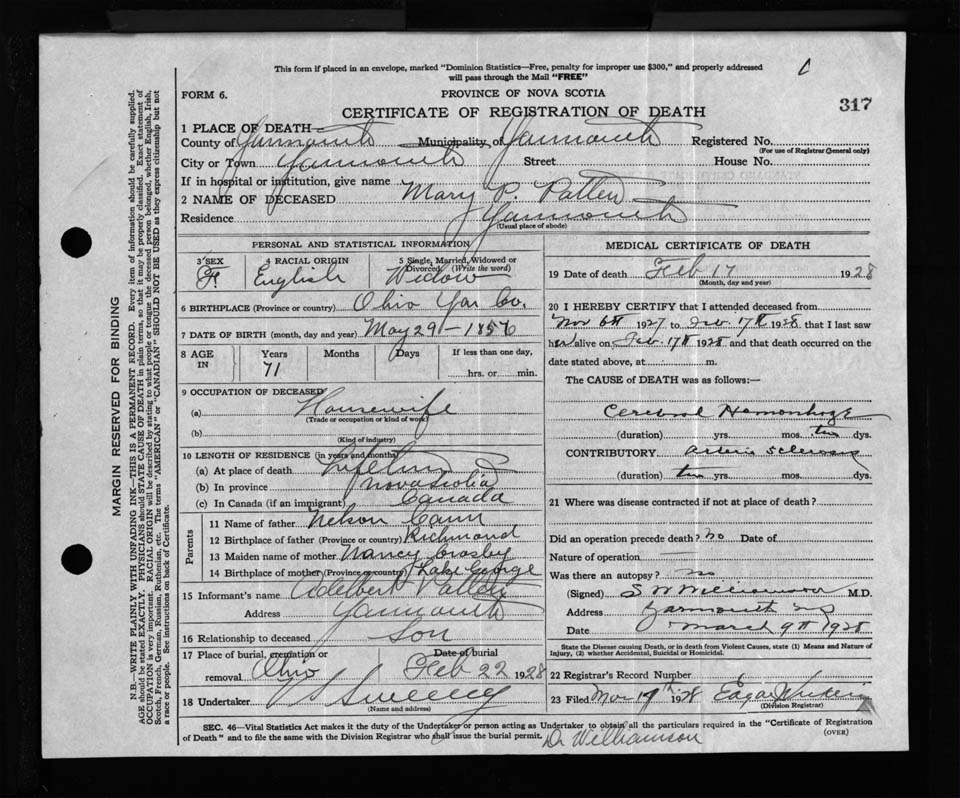 This form if placed in an envelope, marked "Dominion Statistics—Free, penalty for improper use $300," and properly addressed
will pass through the Mail "FREE"
C
FORM 6.
PROVINCE OF NOVA SCOTIA
CERTIFICATE OF REGISTRATION OF DEATH
317
1 PLACE OF DEATH—
County of Yarmouth Municipality of Yarmouth Registered No.
(For use of Registrar General only)
City or Town Yarmouth Street House No.
If in hospital or institution, give name
2 NAME OF DECEASED Mary P. Patten
Residence Yarmouth
(Usual place of abode)
PERSONAL AND STATISTICAL INFORMATION
3 SEX 4 RACIAL ORIGIN 5 Single, Married, Widowed or Divorced (Write the word)
F. English Widow
6 BIRTHPLACE (Province or country) Ohio Yar Co.
7 DATE OF BIRTH (month, day and year) May 29 - 1856
8 AGE IN Years Months Days If less than one day,
71 hrs. or min.
9 OCCUPATION OF DECEASED
(a) Housewife
(Trade or occupation or kind of work)
(b)
(Kind of industry)
10 LENGTH OF RESIDENCE (in years and months)
(a) At place of death Lifetime
(b) In province Nova Scotia
(c) In Canada (if an immigrant) Canada
Parents
11 Name of father Nelson Cann
12 Birthplace of father (Province or country) Richmond
13 Maiden name of mother Nancy Crosby
14 Birthplace of mother (Province or country) Lake George
15 Informant's name Adelbert Patten
Address Yarmouth
16 Relationship to deceased Son
17 Place of burial, cremation or removal Ohio Date of burial Feb 22 1928
18 Undertaker V Sweeney
(Name and address)
MEDICAL CERTIFICATE OF DEATH
19 Date of death Feb 17 1928
(Month, day and year)
20 I HEREBY CERTIFY that I attended deceased from
Nov 6th 1927 to Feb 17th 1928, that I last saw
her alive on Feb 17th 1928 and that death occurred on the
date stated above, at m.
The CAUSE OF DEATH was as follows:—
Cerebral Hemorrhage
(duration) yrs. mos. ten dys.
CONTRIBUTORY Arterio Sclerosis
(duration) ten yrs. mos. dys.
21 Where was disease contracted if not at place of death?
Did an operation precede death? no Date of
Nature of operation
Was there an autopsy? no
(Signed) S W Williamson M.D.
Address Yarmouth NS
Date March 9th 1928
State the Disease causing Death, or in death from Violent Causes, state (1) Means and Nature of
Injury, (2) whether Accidental, Suicidal or Homicidal.
22 Registrar's Record Number
23 Filed Mar 19th 1928 Edgar
(Division Registrar)
SEC. 46—Vital Statistics Act makes it the duty of the Undertaker or person acting as Undertaker to obtain all the particulars required in the "Certificate of Registration
of Death" and to file the same with the Division Registrar who shall issue the burial permit.
(OVER)
Dr Williamson
MARGIN RESERVED FOR BINDING
N.B.—WRITE PLAINLY WITH UNFADING INK—THIS IS A PERMANENT RECORD. Every item of information should be carefully supplied.
AGE should be stated EXACTLY. PHYSICIANS should STATE CAUSE OF DEATH in plain terms, so that it may be properly classified. Exact statement of
OCCUPATION is very important. RACIAL ORIGIN will be described by stating to what people or tongue the deceased person belonged, whether English, Irish,
Scotch, French, German, Russian, Ruthenian, etc. The terms "AMERICAN" or "CANADIAN" SHOULD NOT BE USED as they express citizenship but not
a race or people. See instructions on back of Certificate.